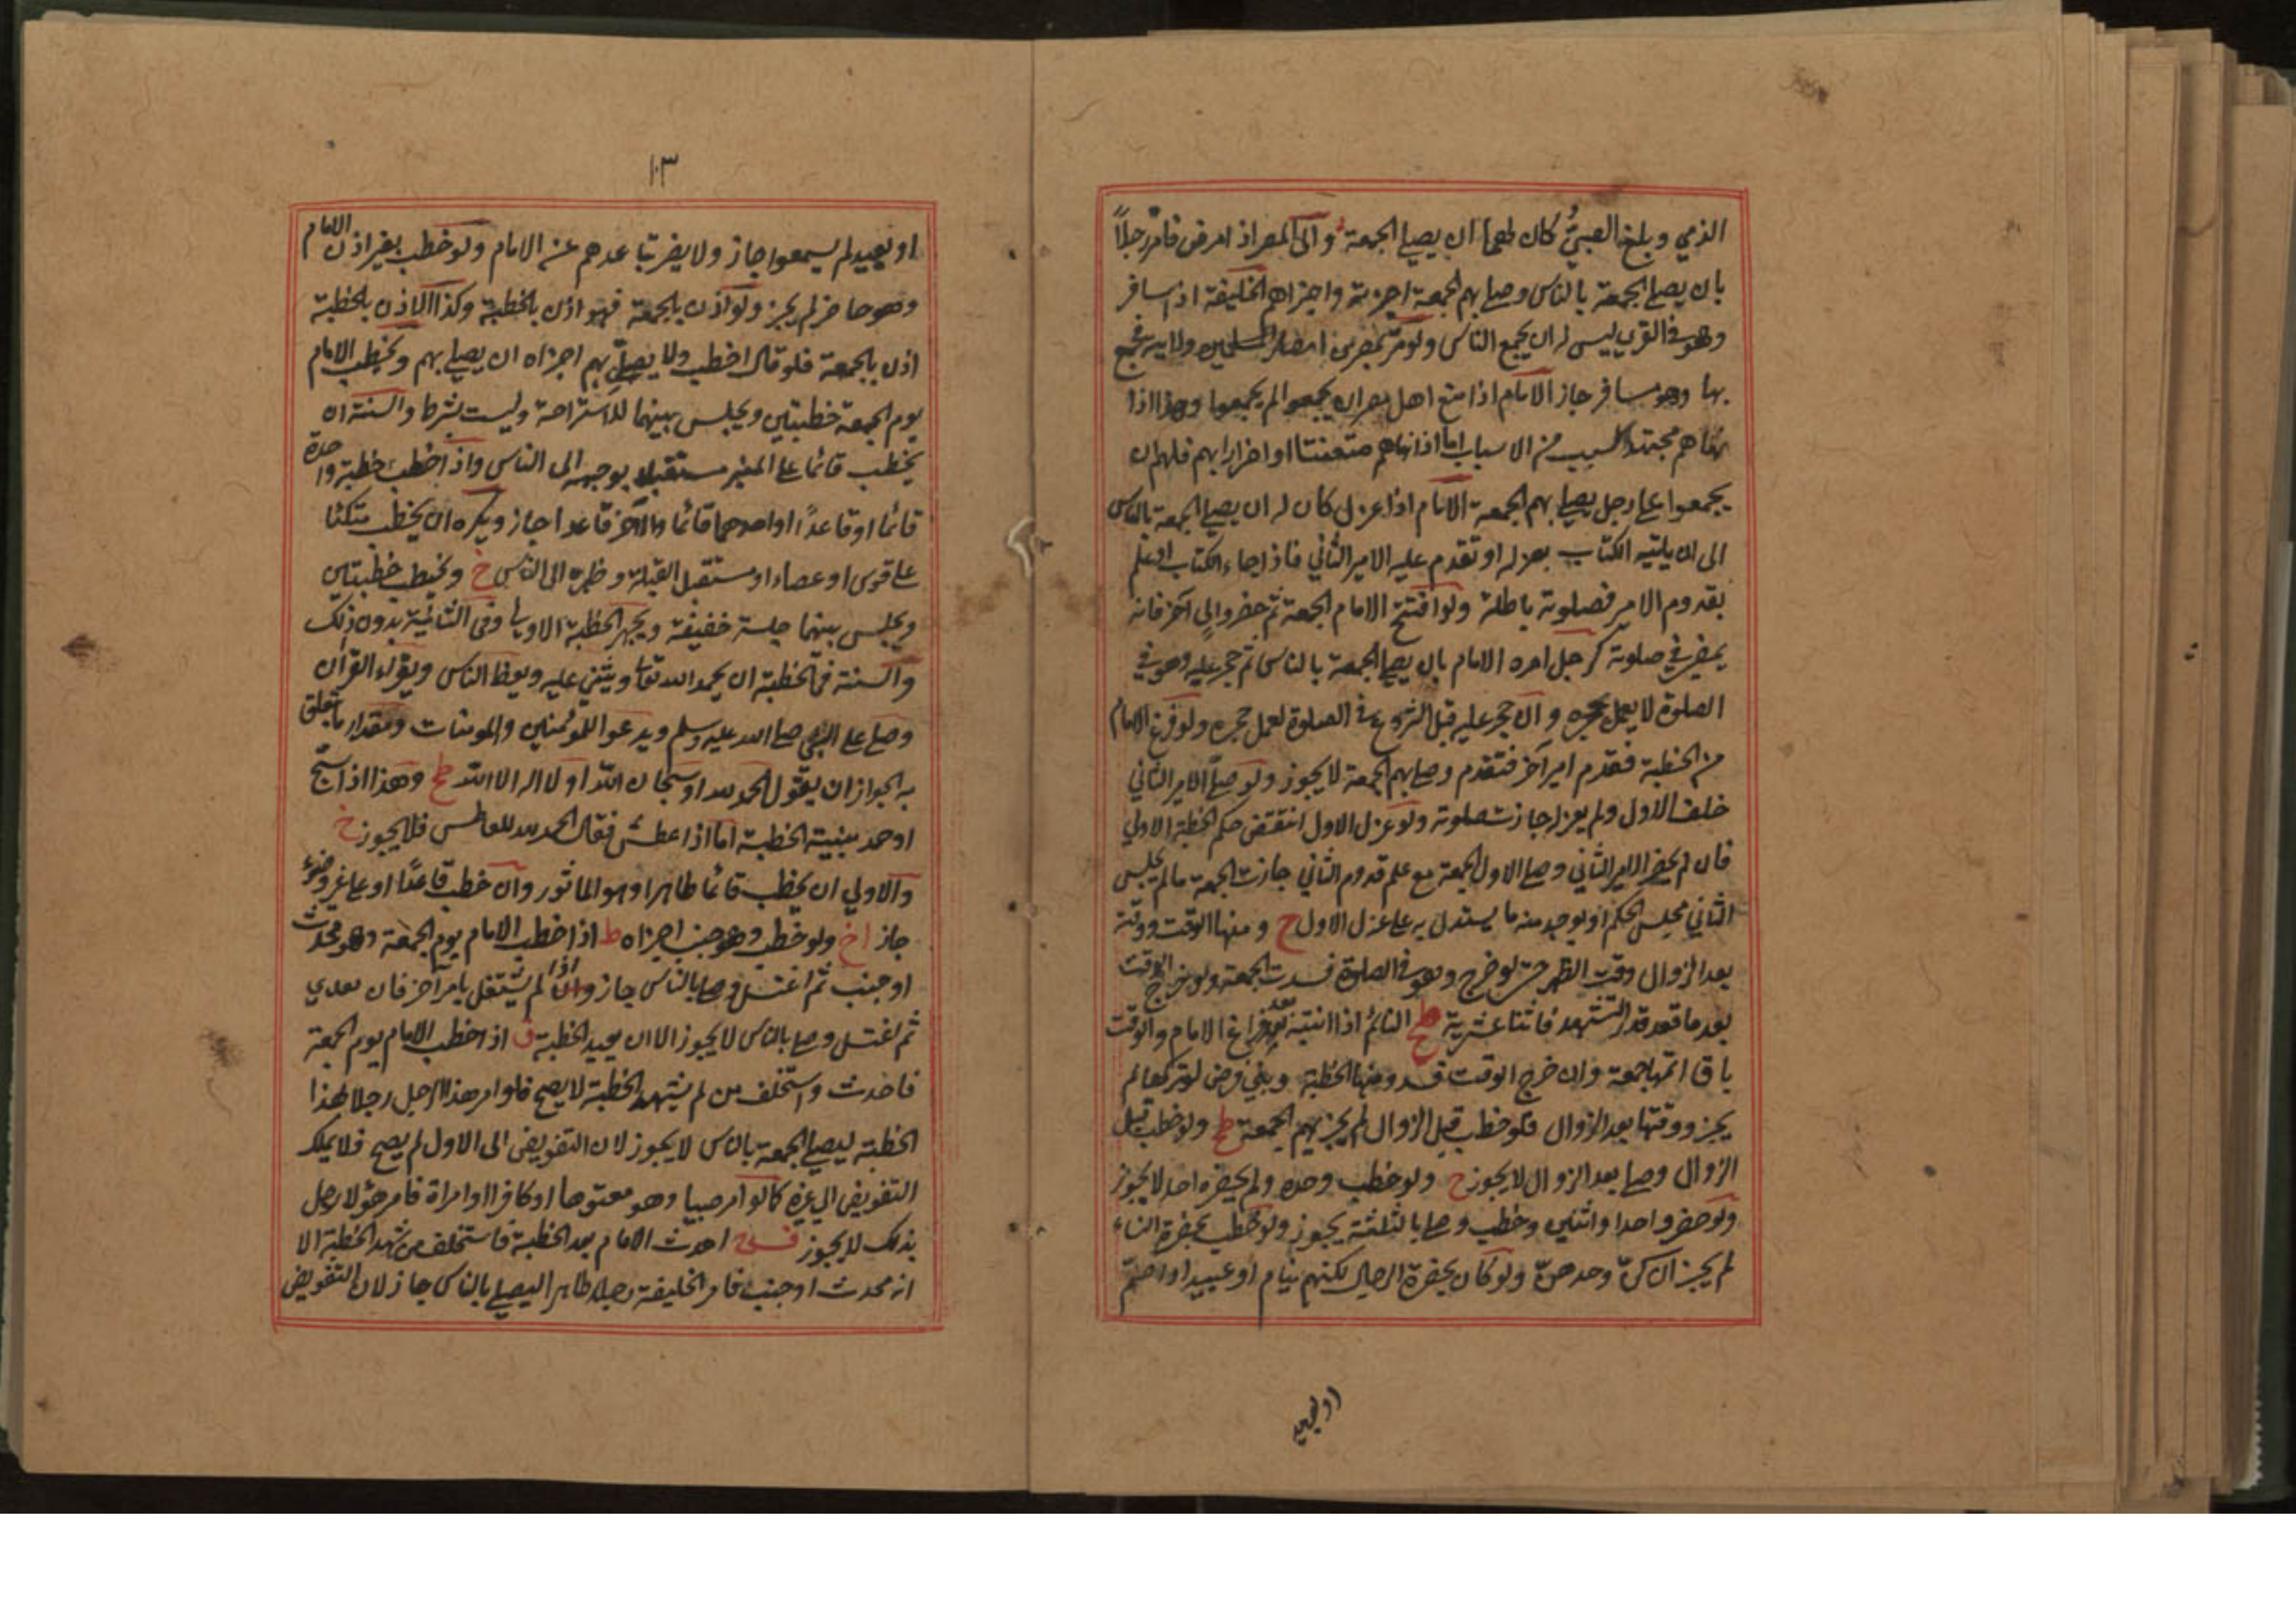 الذمي وبلغ الصبي كان لهما ان يصلي الجمعة والى المصر اذا مرض فامر رجلاً
بان يصلي الجمعة بالناس وصلى بهم الجمعة اجزته واجزاهم الخليفة اذا سافر
وهو في القرى ليس له ان يجمع الناس ولو مر بمصر من امصار المسلمين ولايته فجمع
بها وهو مسافر جاز الامام اذا منع اهل مصر ان يجمعوا لم يجمعوا وهذا اذا
نهاهم مجتهدا لسبب من الاسباب اما اذا نهاهم متعنتا او اضرارا بهم فلهم ان
يجمعوا على رجل يصلي بهم الجمعة الامام اذا عزل كان له ان يصلي الجمعة بالناس
الى ان ياتيه الكتاب بعزله او تقدم عليه الامير الثاني فاذا جاء الكتاب او علم
بقدوم الامير فصلوته باطلة ولو افتتح الامام الجمعة ثم حضر والي آخر فانه
يمضي في صلوته كرجل امره الامام بان يصلي الجمعة بالناس ثم حجر عليه وهو في
الصلوة لا يعمل حجره وان حجر عليه قبل الشروع في الصلوة لعمل حجره ولو فرغ الامام
من الخطبة فقدم امير آخر فتقدم وصلى بهم الجمعة لا يجوز ولو صلى الامير الثاني
خلف الاول ولم يعزله جازت صلوته ولو عزل الاول انتقض حكم الخطبة الاولي
فان لم يحضر الامير الثاني وصلى الاول الجمعة مع علم قدوم الثاني جازت الجمعة ما لم يجلس
الثاني مجلس الحكم او يوجد منه ما يستدل به على عزل الاول ح ومنها الوقت ووقته
بعد الزوال وقت الظهر حتى لو خرج وهو في الصلوة فسدت الجمعة ولو خرج الوقت
بعد ما قعد قدر التشهد فاثنا عشرية النائم اذا انتبه بعد فراغ الامام والوقت
باق اتمها جمعة وان خرج الوقت فسد ومنها الخطبة وهي فرض لو تركها لم
يجز ووقتها بعد الزوال فلو خطب قبل الزوال لم يجز بهم الجمعة ط ولو خطب قبل
الزوال وصلى بعد الزوال لا يجوز ح ولو خطب وحده ولم يحضره احد لا يجوز
ولو حضر واحد او اثنين وخطب وصلى بالثلثة يجوز ولو خطب بحضرة النساء
لم يجز ان كن وحدهن ولو كان بحضرة الرجال لكنهم نيام او عبيد او اصم
او بعيد
١٠٣
او بعيد لم يسمعوا جاز ولا يضر تباعدهم عن الامام ولو خطب بغير اذن الامام
وهو حاضر لم يجز ولو اذن بالجمعة فهو اذن بالخطبة وكذا الاذن بالخطبة
اذن بالجمعة فلو قال اخطب ولا يصل بهم اجزاه ان يصلي بهم ويخطب الامام
يوم الجمعة خطبتين ويجلس بينهما للاستراحة وليست بشرط والسنة ان
يخطب قائما على المنبر مستقبلا بوجهه الى الناس واذا خطب خطبة واحدة
قائما او قاعداً او احدهما قائما والآخر قاعدا جاز ويكره ان يخطب متكئا
على قوس او عصاء او مستقبل القبلة وظهره الى الناس خ ويخطب خطبتين
ويجلس بينهما جلسة خفيفة ويجهر الخطبة الاولي وفي الثانية بدون ذلك
والسنة في الخطبة ان يحمد الله تعالى ويثني عليه ويعظ الناس ويقراء القرآن
وصلى على النبي صلى الله عليه وسلم ويدعوا للمؤمنين والمومنات ومقدار ما يتعلق
به الجواز ان يقول الحمد لله او سبحان الله او لا اله الا الله ط وهذا اذا سبح
او حمد بنية الخطبة اما اذا عطش فقال الحمد لله للعاطس فلا يجوز خ
والاولي ان يخطب قائما طاهرا وهو الماثور وان خطب قاعدًا او على غير وضوء
جاز اخ ولو خطب وهو جنب اجزاه ط اذا خطب الامام يوم الجمعة وهو محدث
او جنب ثم اغتسل وصلى بالناس جاز اذا لم يشتغل بامر آخر فان
ثم اغتسل وصلى بالناس لا يجوز الا ان يعيد الخطبة ف اذا خطب الامام يوم الجمعة
فاحدث واستخلف من لم يشهد الخطبة لا يصح فلو امر هذا الرجل رجلا لهذا
الخطبة ليصلي الجمعة بالناس لا يجوز لان التفويض الى الاول لم يصح فلا يملك
التفويض الى غيره كما لو امر صبيا وهو معتوها او كافرا او امراة فامر هؤلا رجل
بذلك لا يجوز احدث الامام بعد الخطبة فاستخلف من شهد الخطبة الا
انه محدث او جنب فامر الخليفة رجلا طاهرا ليصلي بالناس جاز لان التفويض